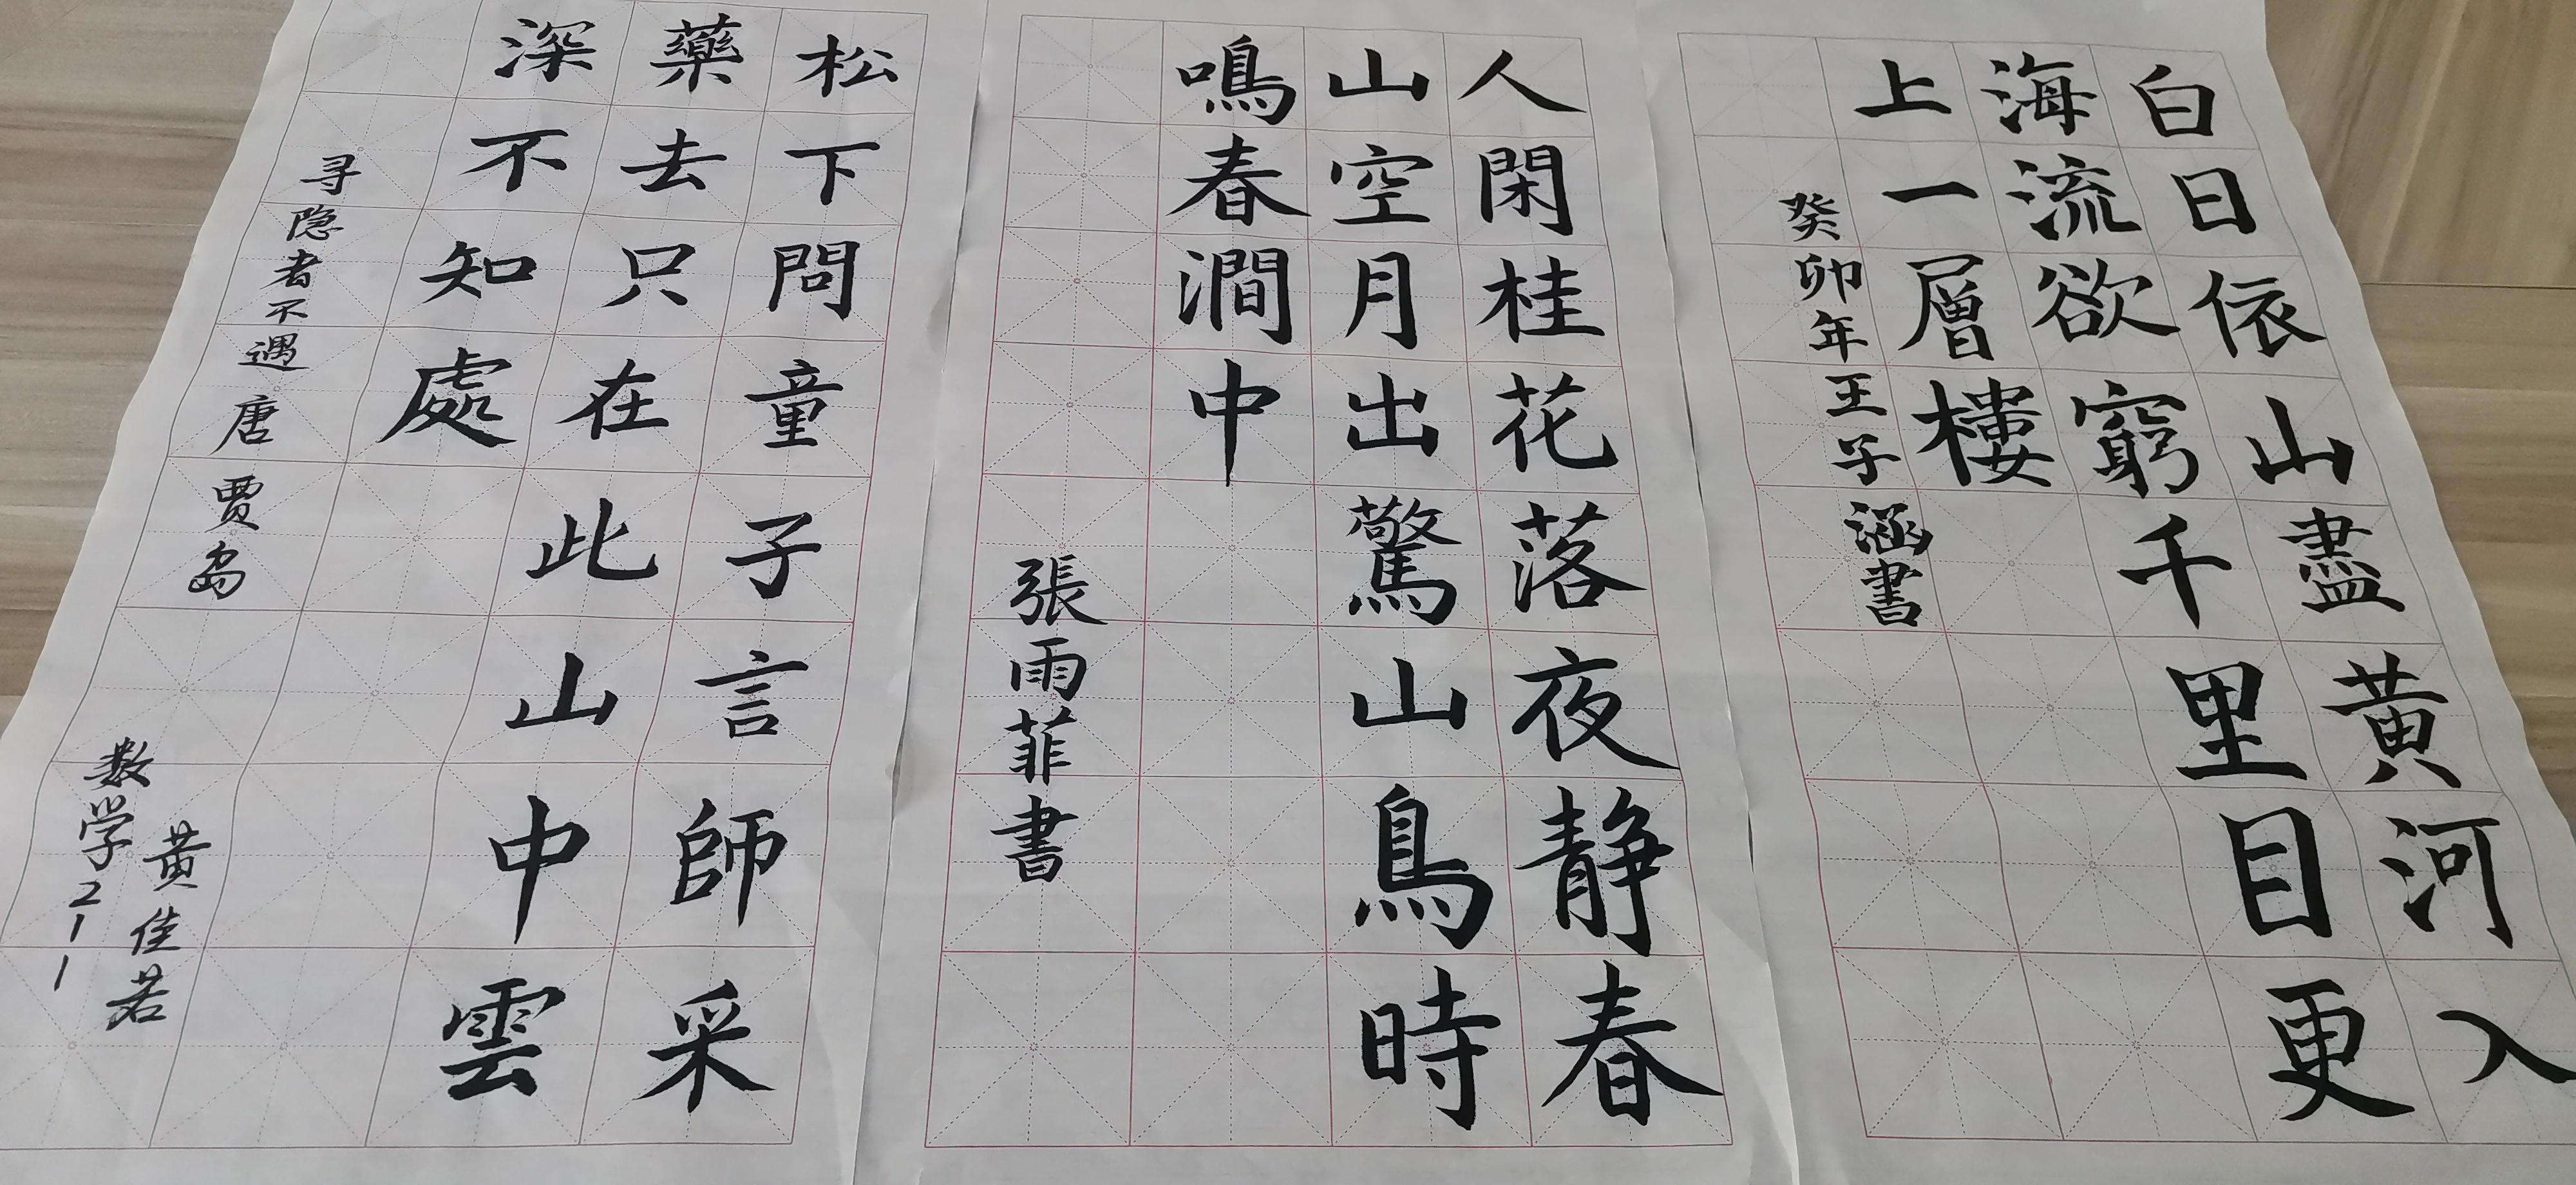 白日依山盡黄河入
海流欲窮千里目更
上一層樓
癸卯年王子涵書
人閑桂花落夜静春
山空月出驚山鳥時
鳴春澗中
張雨菲書
松下問童子言師采
藥去只在此山中雲
深不知處
寻隐者不遇唐贾岛
黄佳若
数学211